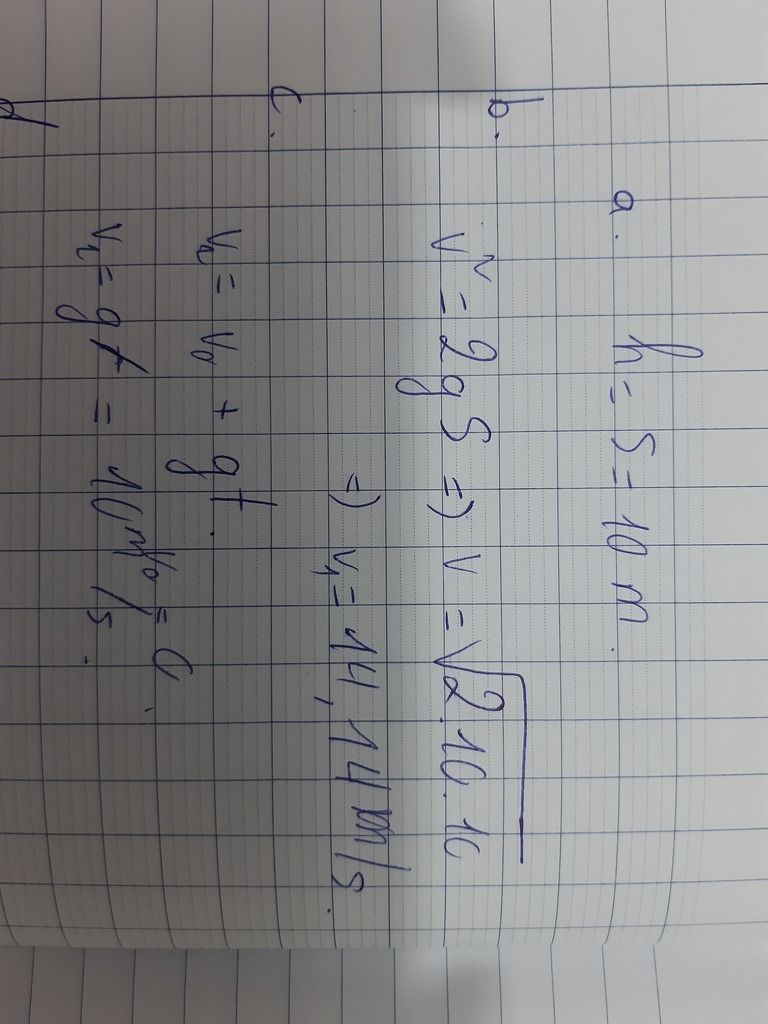 a. h = S = 10 m.
b. v² = 2gS => v = √2.10.10
=> v₁ = 14,14 m/s.
c. v₂ = v₀ + gt. v₀ = 0.
v₂ = gt = 10 m/s.
d